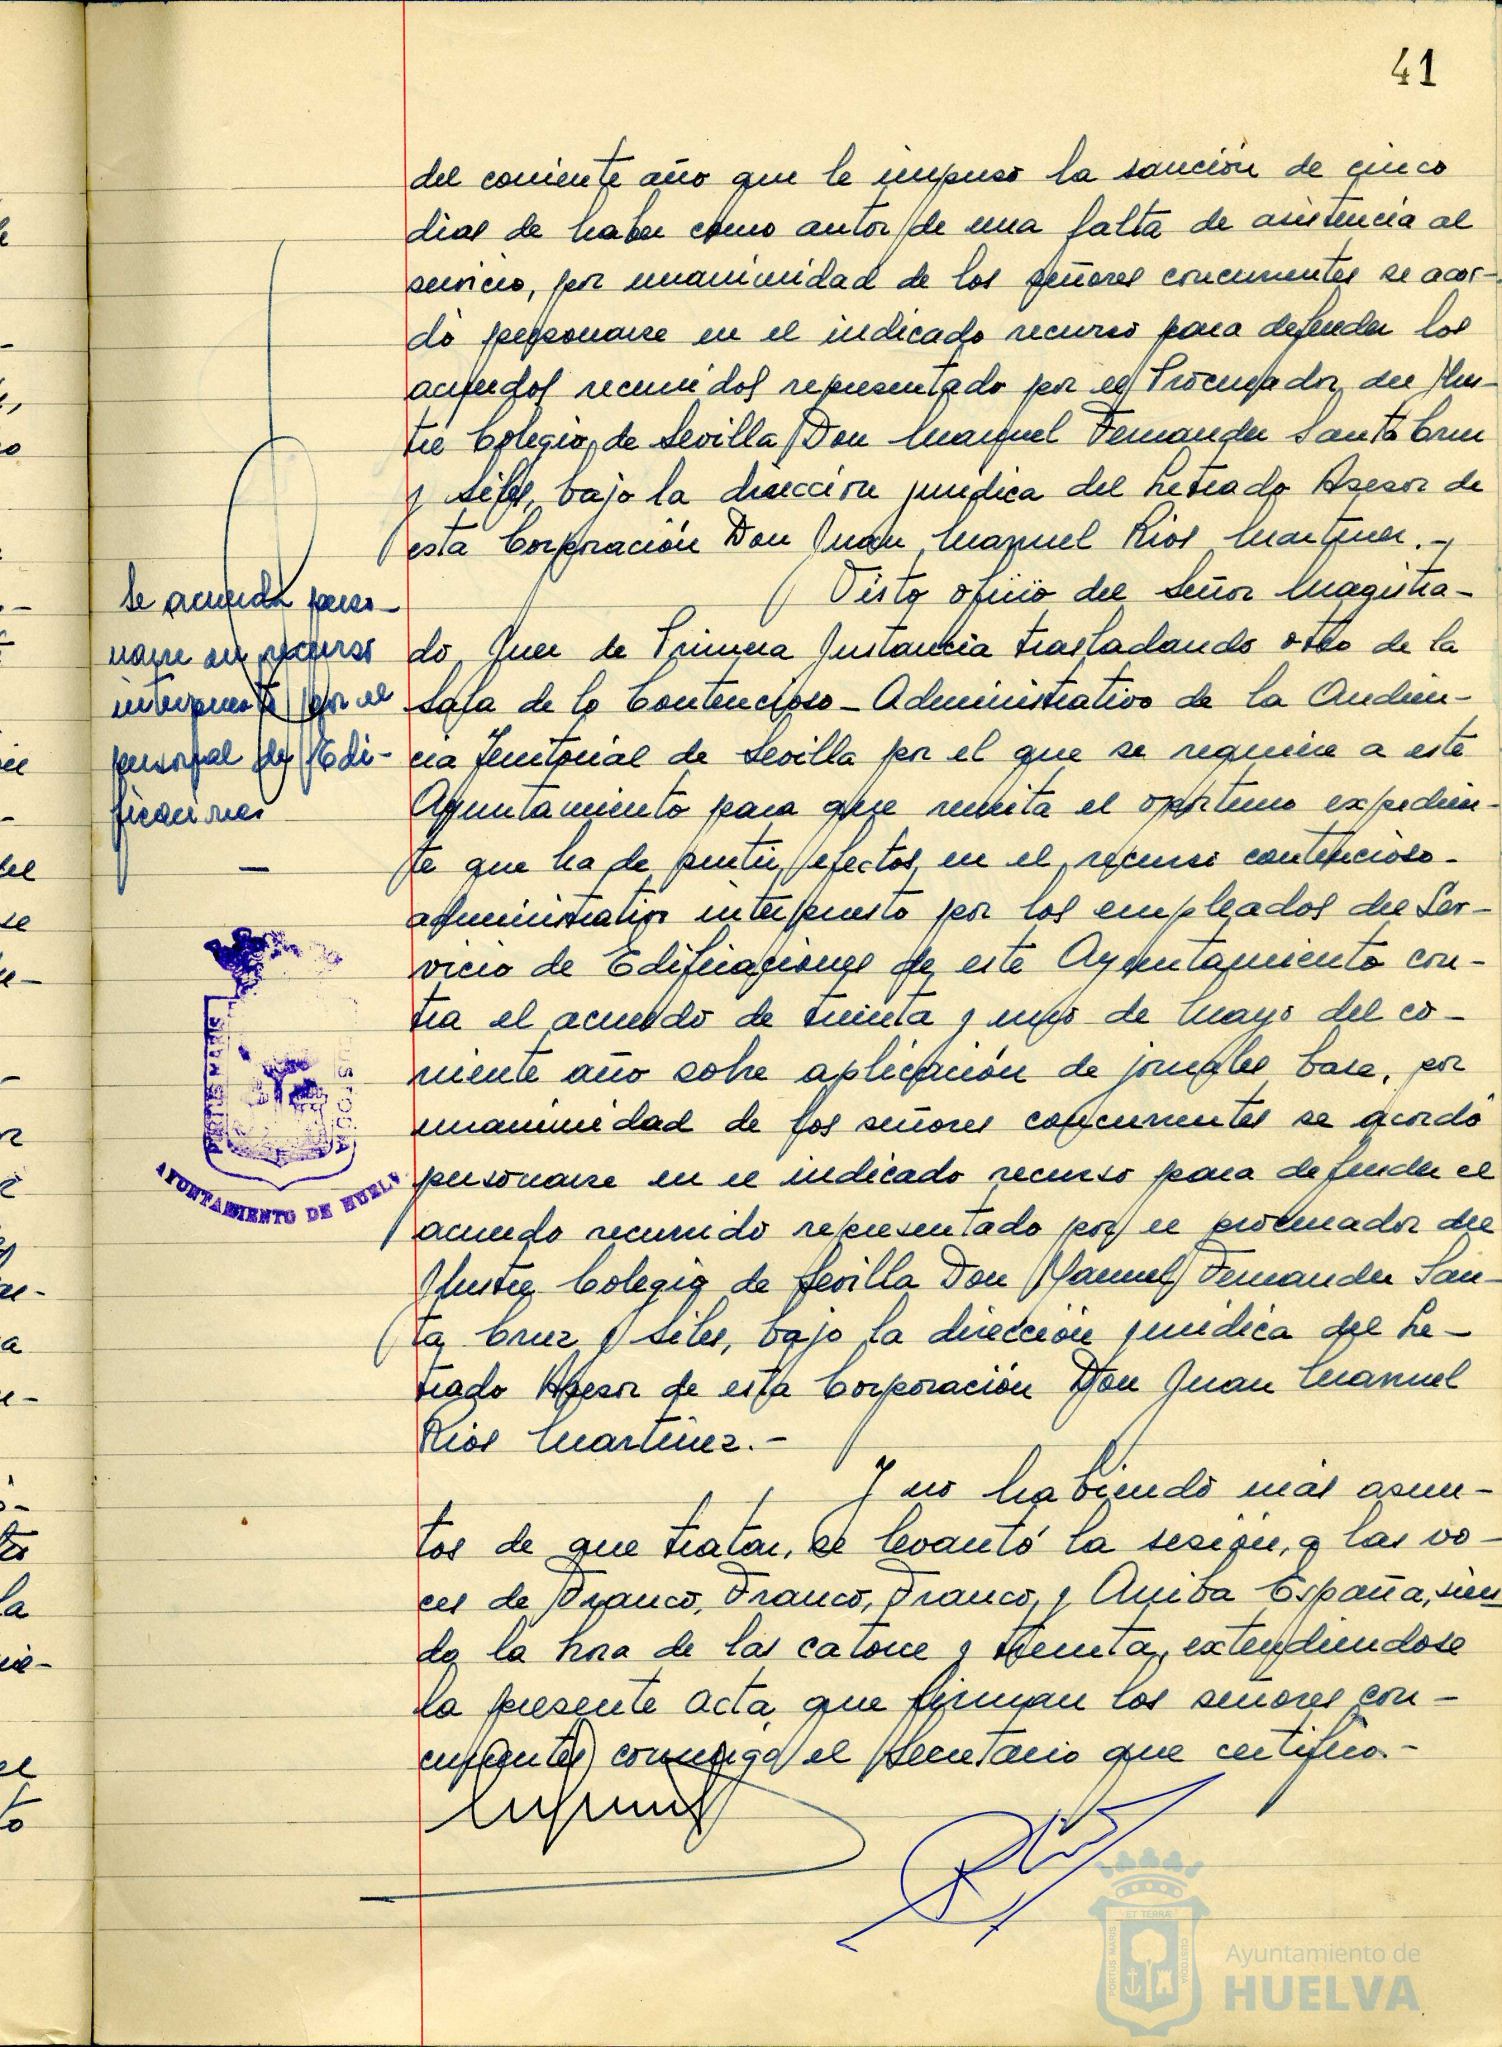 41
del corriente año que le impuso la sanción de cinco
dias de haber como autor de una falta de asistencia al
servicio, por unanimidad de los señores concurrentes se acor-
dó personarse en el indicado recurso para defender los
acuerdos recurridos representado por el Procurador del Ilus-
tre Colegio de Sevilla Don Manuel Fernandez Santa Cruz
y Siles, bajo la dirección juridica del Letrado Asesor de
esta Corporación Don Juan Manuel Rios Martinez.-
Visto oficio del Señor Magistra-
do Juez de Primera Instancia trasladando otro de la
Sala de lo Contencioso-Administrativo de la Audien-
cia Territorial de Sevilla por el que se requiere a este
Ayuntamiento para que remita el oportuno expedien-
te que ha de surtir efectos en el recurso contencioso-
administrativo interpuesto por los empleados del Ser-
vicio de Edificaciones de este Ayuntamiento con-
tra el acuerdo de treinta y uno de Mayo del co-
rriente año sobre aplicación de jornales base, por
unanimidad de los señores concurrentes se acordó
personarse en el indicado recurso para defender el
acuerdo recurrido representado por el procurador del
Ilustre Colegio de Sevilla Don Manuel Fernandez San-
ta Cruz y Siles, bajo la dirección juridica del Le-
trado Asesor de esta Corporación Don Juan Manuel
Rios Martinez.-
Y no habiendo más asun-
tos de que tratar, se levantó la sesión, a las vo-
ces de Franco, Franco, Franco, y Arriba España, sien-
do la hora de las catorce y treinta, extendiendose
la presente acta que firman los señores con-
currentes conmigo el Secretario que certifico.-
Se acuerda perso-
narse en recurso
interpuesto por el
personal de Edi-
ficaciones
PORTUS MARIS
AYUNTAMIENTO DE HUELVA
ET TERRÆ
PORTUS MARIS
CUSTODIA
Ayuntamiento de
HUELVA